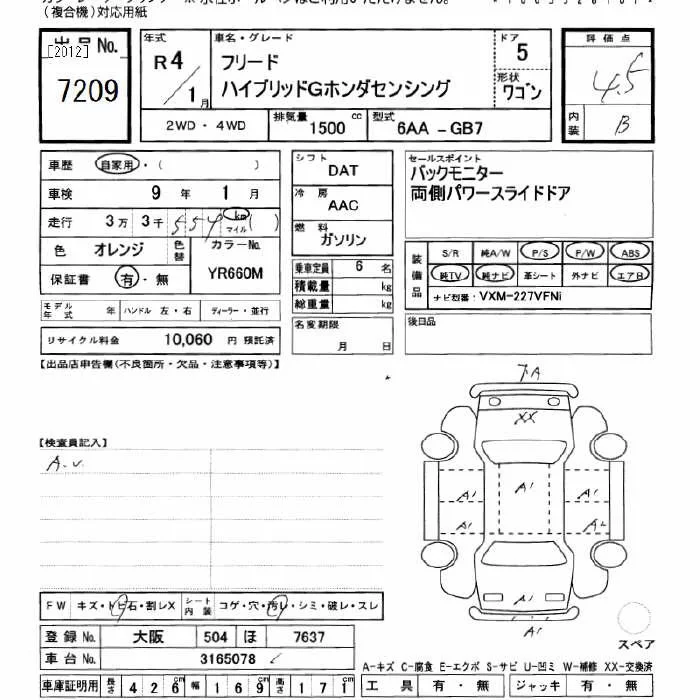 （複合機）対応用紙
出品No.
[2012]
7209
年式 車名・グレード ドア 評価点
R4/1月 フリード 5 4.5
ハイブリッドGホンダセンシング 形状 ワゴン
内装 B
2WD・4WD 排気量 1500cc 型式 6AA -GB7
車歴 自家用・( )
車検 9年 1月
走行 3万3千554 km マイル ( )
色 オレンジ 色替 カラーNo. YR660M
保証書 有・無
シフト DAT
冷房 AAC
燃料 ガソリン
乗車定員 6名
積載量 kg
総重量 kg
セールスポイント
バックモニター
両側パワースライドドア
装備品 S/R 純A/W P/S P/W ABS
純TV 純ナビ 革シート 外ナビ エアB
ナビ型番：VXM-227VFNi
モデル年式 年 ハンドル 左・右 ディーラー・並行
名変期限 月 日
後日品
リサイクル料金 10,060 円 預託済
【出品店申告欄(不良箇所・欠品・注意事項等)】
【検査員記入】
A.U.
A
XX
A1 A1 A1
A1 A2
A1
A1
FW キズ・トビ石・割レX シート内装 コゲ・穴・汚レ・シミ・破レ・スレ
登録No. 大阪 504 ほ 7637
車台No. 3165078
スペア
A-キズ C-腐食 E-エクボ S-サビ U-凹ミ W-補修 XX-交換済
車庫証明用 長さ 426cm 幅 169cm 高さ 171cm
工具 有・無 ジャッキ 有・無